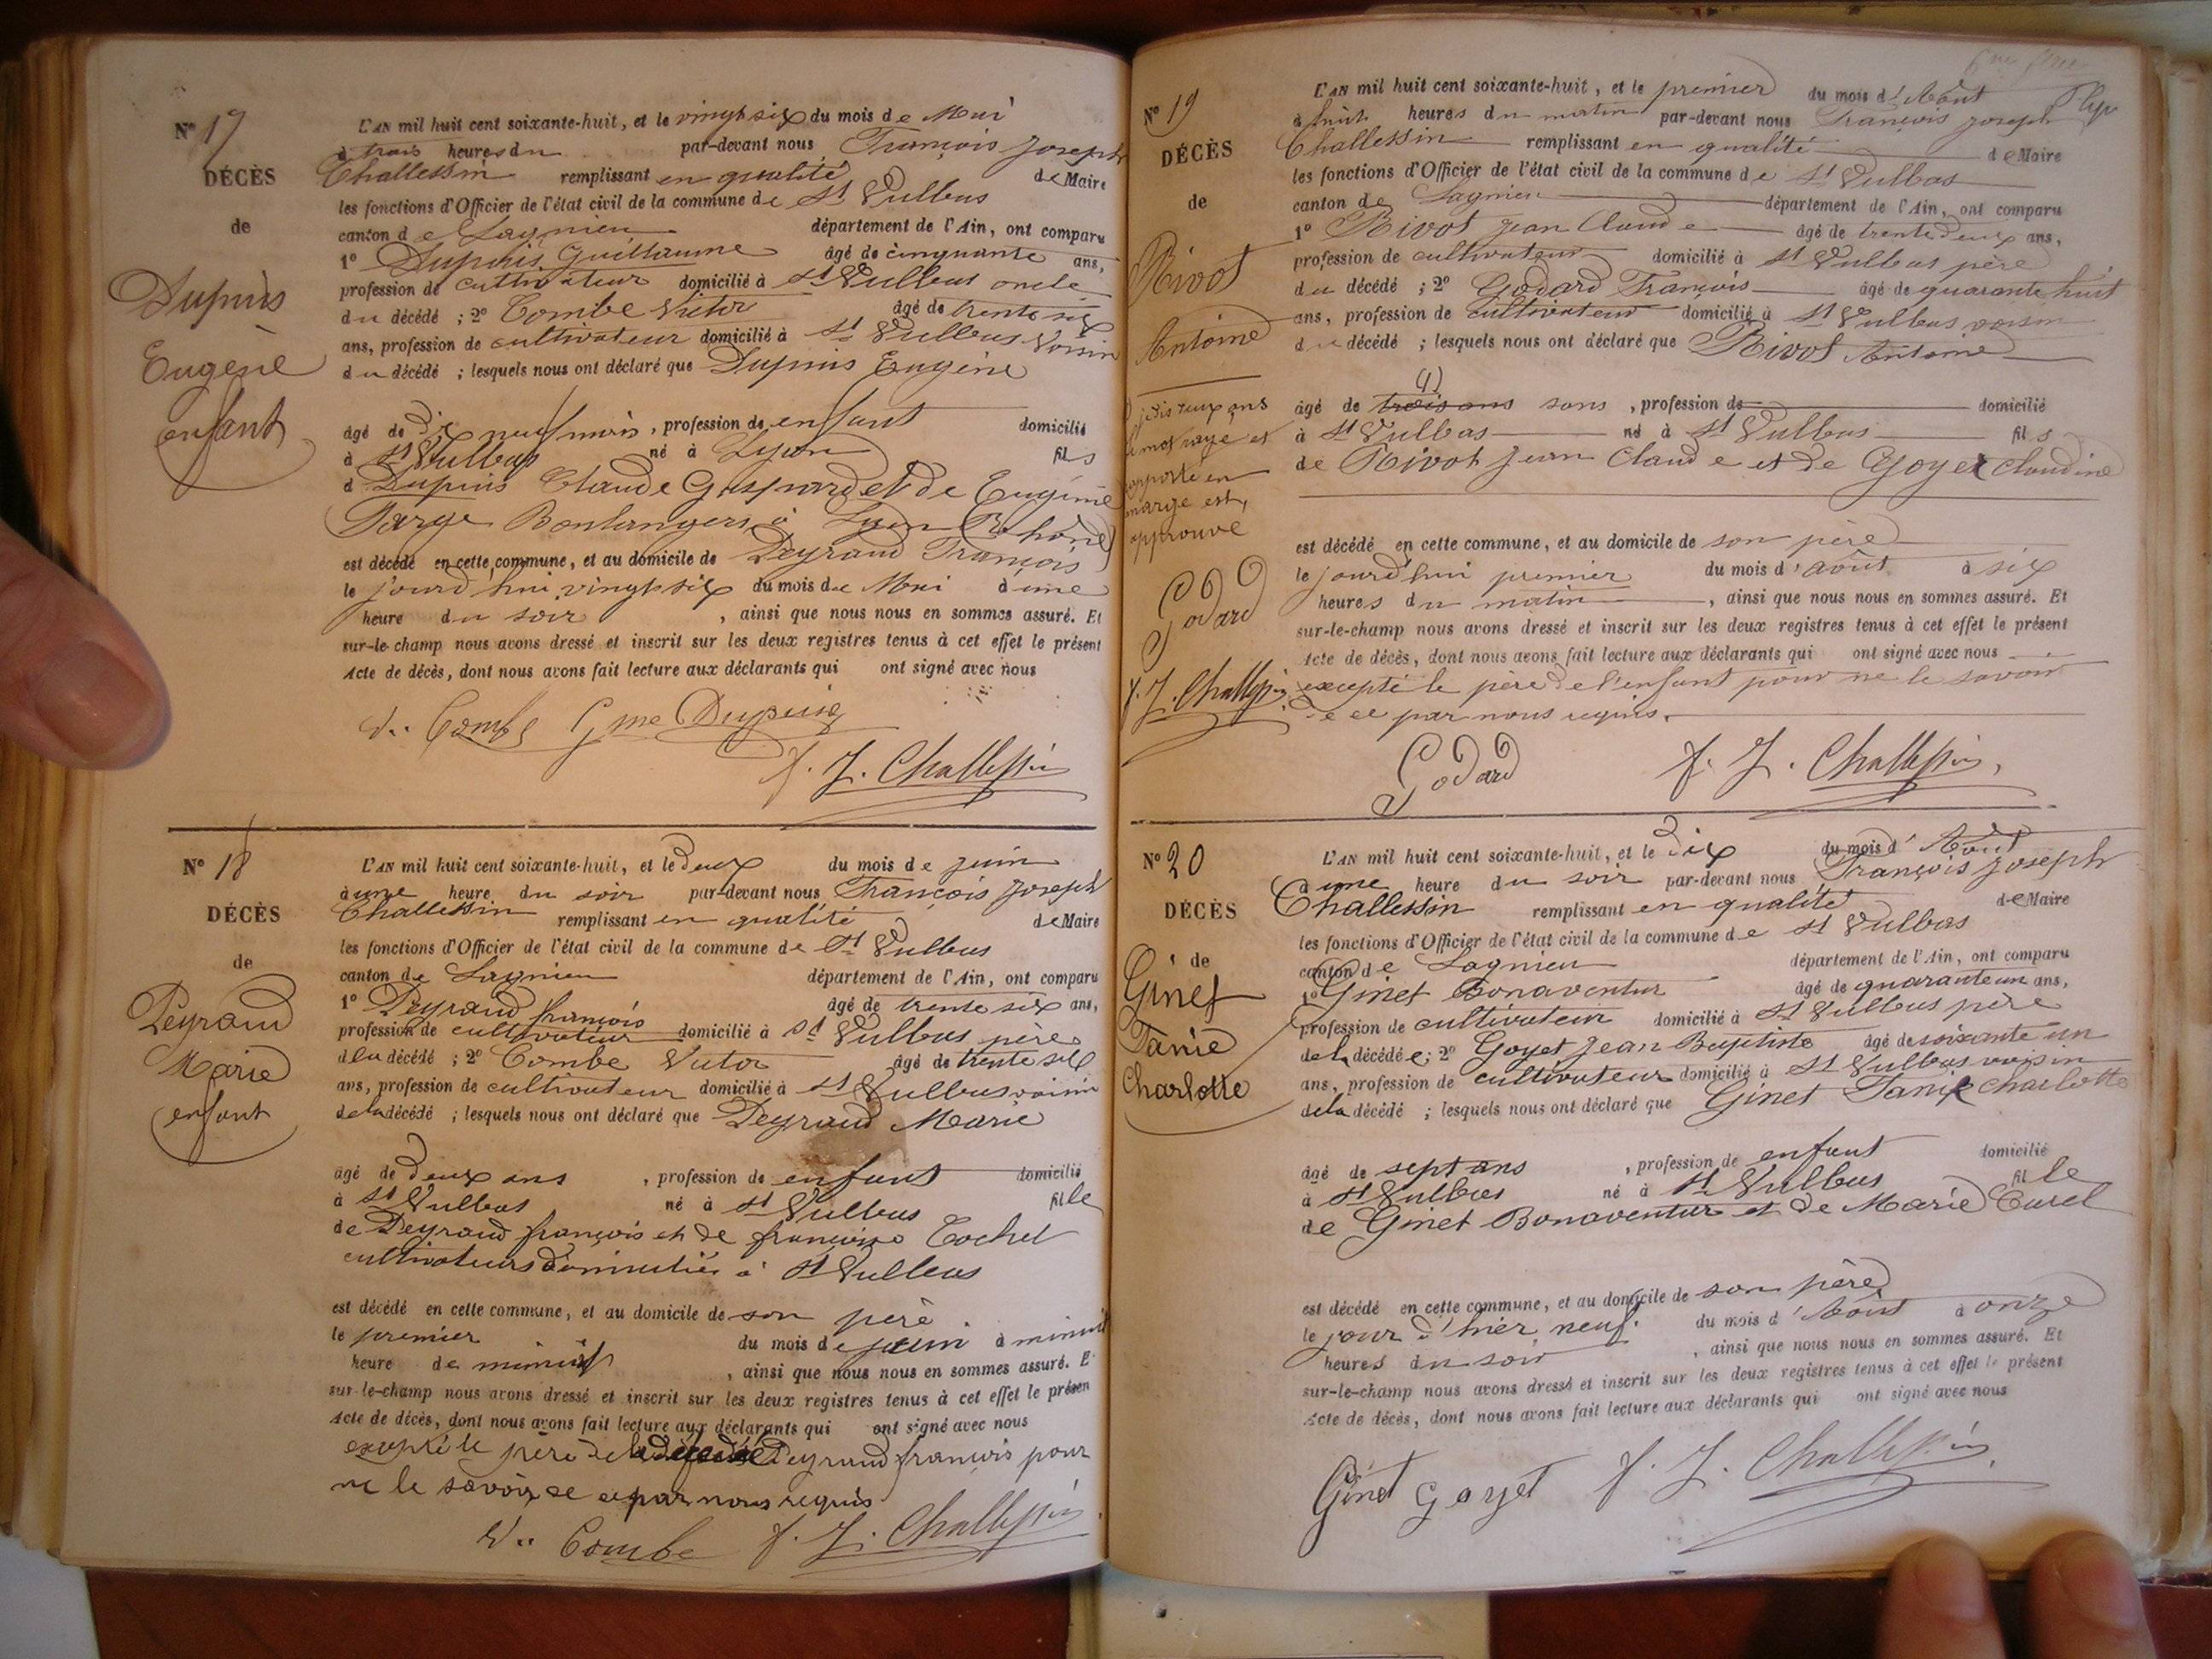 N° 17
DÉCÈS
de
Dupuis
Eugène
enfant
L'AN mil huit cent soixante-huit, et le vingt six du mois de Mai
à trois heures du par-devant nous François joseph
Challessin remplissant en qualité de Maire
les fonctions d'Officier de l'état civil de la commune de St Vulbas
canton de Lagnieu département de l'Ain, ont comparu
1° Dupuis Guillaume âgé de cinquante ans,
profession de cultivateur domicilié à St Vulbas oncle
du décédé ; 2° Combe Victor âgé de trente six
ans, profession de cultivateur domicilié à St Vulbas voisin
du décédé ; lesquels nous ont déclaré que Dupuis Eugène
âgé de Dix neuf mois, profession de enfant domicilié
à St Vulbas né à Lyon fils
d Dupuis Claude Gaspard et de Eugénie
Farge Boulangers à Lyon (Rhône)
est décédé en cette commune, et au domicile de Peyraud François
le jourd'hui vingt six du mois de Mai à une
heure du soir , ainsi que nous nous en sommes assuré. Et
sur-le-champ nous avons dressé et inscrit sur les deux registres tenus à cet effet le présent
Acte de décès, dont nous avons fait lecture aux déclarants qui ont signé avec nous
V. Combe Gme Dupuis
f. J. Challessin
N° 18
DÉCÈS
de
Peyraud
Marie
enfant
L'AN mil huit cent soixante-huit, et le Deux du mois de juin
à une heure du soir par-devant nous François joseph
Challessin remplissant en qualité de Maire
les fonctions d'Officier de l'état civil de la commune de St Vulbas
canton de Lagnieu département de l'Ain, ont comparu
1° Peyraud françois âgé de trente six ans,
profession de cultivateur domicilié à St Vulbas père
de la décédé ; 2° Combe Victor âgé de trente six
ans, profession de cultivateur domicilié à St Vulbas voisin
de la décédé ; lesquels nous ont déclaré que Peyraud Marie
âgé de Deux ans , profession de enfant domicilié
à St Vulbas né à St Vulbas fille
de Peyraud françois et de françoise Cochet
cultivateurs domiciliés à St Vulbas
est décédé en cette commune, et au domicile de son père
le premier du mois de juin à minuit
heure de minuit , ainsi que nous nous en sommes assuré. E
sur-le-champ nous avons dressé et inscrit sur les deux registres tenus à cet effet le présen
Acte de décès, dont nous avons fait lecture aux déclarants qui ont signé avec nous
excepté le père de la décédé Peyraud françois pour
ne le savoir de ce par nous requis
V. Combe f. J. Challessin
N° 19
DÉCÈS
de
Rivot
Antoine
mot rayé et
apporté en
marge est,
approuvé
Godard
f. J. Challessin
L'AN mil huit cent soixante-huit, et le premier du mois d'Août
à huit heures du matin par-devant nous François joseph
Challessin remplissant en qualité de Maire
les fonctions d'Officier de l'état civil de la commune de St Vulbas
canton de Lagnieu département de l'Ain, ont comparu
1° Rivot jean Claude âgé de trente deux ans,
profession de cultivateur domicilié à St Vulbas père
du décédé ; 2° Godard François âgé de quarante huit
ans, profession de cultivateur domicilié à St Vulbas voisin
du décédé ; lesquels nous ont déclaré que Rivot Antoine
(1)
âgé de trois ans sans , profession de domicilié
à St Vulbas né à St Vulbas fils
de Rivot jean Claude et de Goyet Claudine
est décédé en cette commune, et au domicile de son père
le jourd'hui premier du mois d'août à six
heures du matin , ainsi que nous nous en sommes assuré. Et
sur-le-champ nous avons dressé et inscrit sur les deux registres tenus à cet effet le présent
Acte de décès, dont nous avons fait lecture aux déclarants qui ont signé avec nous
excepté le père de l'enfant pour ne le savoir
de ce par nous requis.
Godard f. J. Challessin
N° 20
DÉCÈS
de
Ginet
Fanie
Charlotte
L'AN mil huit cent soixante-huit, et le Dix du mois d'Août
à une heure du soir par-devant nous François joseph
Challessin remplissant en qualité de Maire
les fonctions d'Officier de l'état civil de la commune de St Vulbas
canton de Lagnieu département de l'Ain, ont comparu
1° Ginet Bonaventur âgé de quarante un ans,
profession de cultivateur domicilié à St Vulbas père
de la décédée; 2° Goyet Jean Baptiste âgé de soixante un
ans, profession de cultivateur domicilié à St Vulbas voisin
de la décédé ; lesquels nous ont déclaré que Ginet Fanie Charlotte
âgé de sept ans , profession de enfant domicilié
à St Vulbas né à St Vulbas fille
de Ginet Bonaventur et de Marie Curel
est décédé en cette commune, et au domicile de son père
le jour d'hier neuf du mois d'Août à onze
heures du soir , ainsi que nous nous en sommes assuré. Et
sur-le-champ nous avons dressé et inscrit sur les deux registres tenus à cet effet le présent
Acte de décès, dont nous avons fait lecture aux déclarants qui ont signé avec nous
Ginet Goyet f. J. Challessin